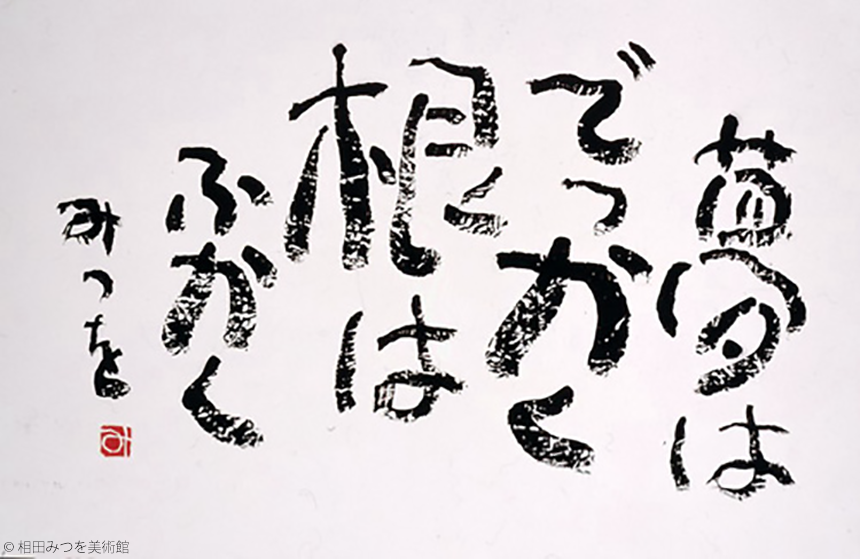 夢は
でっかく
根は
ふかく
みつを
み
© 相田みつを美術館